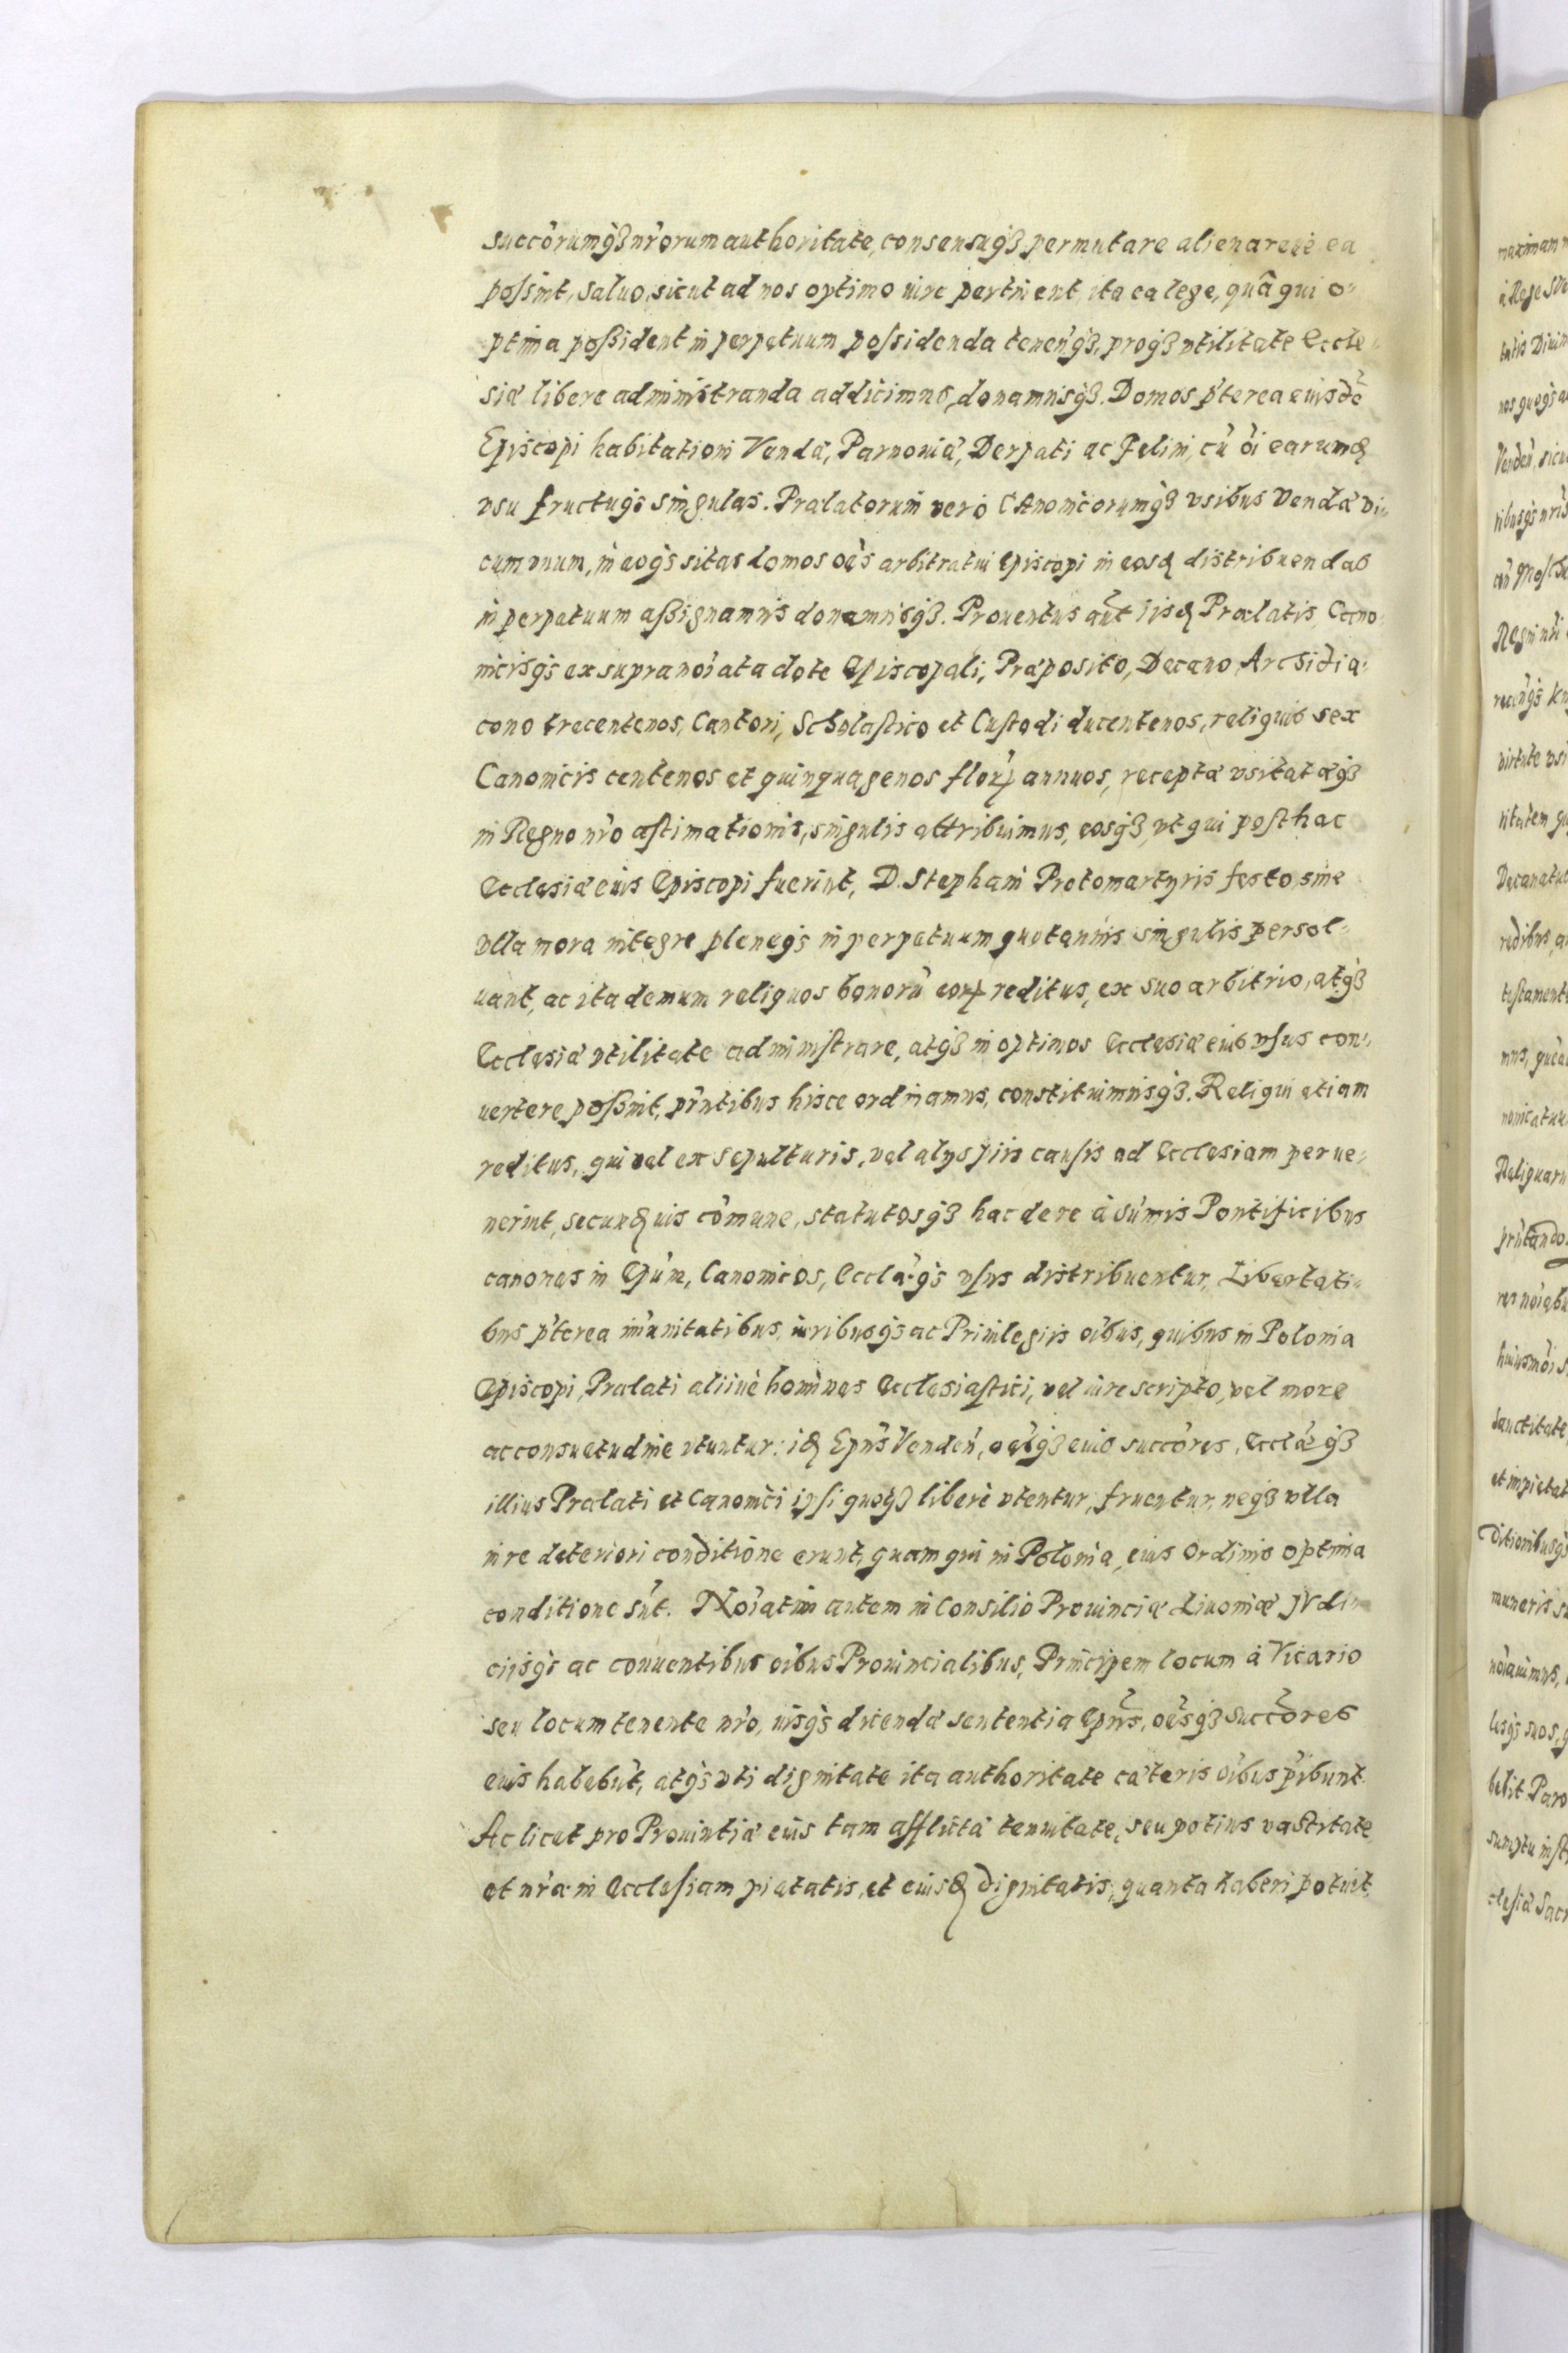 succôrumq3 nrorum authoritate, consensuq3 permutare alienareuè ea
possint, saluo, sicut ad nos optimo iure pertinent, ita ea lege, quâ qui o-
ptima possident in perpetuum possidenda tenenq3, proq3 vtilitate Eccle-
siæ libere administranda addicimus, donamusq3. Domos pterea eiusdẽ
Episcopi habitationi Vendæ, Parnouiæ, Derpati ac Felini, cũ oi earum
vsu fructuqs singulas. Prælatorum vero CAnonicorumq3 vsibus Vendæ vi-
cum vnum, in eoqs sitas domos oẽs arbitratui Episcopi in eosd distribuendas
in perpetuum assignamus donamusq3. Prouentus aũt iisd Prælatis, Cano-
nicisqs ex supra noiata dote Episcopali, Præposito, Decano, Archidia-
cono trecentenos, Cantori, Scholastico et Custodi ducentenos, reliquis sex
Canonicis centenos et quinquagenos flor annuos, receptæ vsitatæq3
in Regno nro æstimationis, singulis attribuimus, eosq3, vt qui posthac
Ecclesiæ eius Episcopi fuerint, D. Stephani Protomartyris festo, sine
vlla mora integre pleneqs in perpetuum quotannis singulis persol-
uant, ac ita demum reliquos bonorũ eor reditus, ex suo arbitrio, atq3
Ecclesiæ vtilitate administrare, atq3 in optimos Ecclesiæ eius vsus con-
uertere possint, pñtibus hisce ordinamus, constituimusq3. Reliqui etiam
reditus, qui vel ex sepulturis, vel alijs pijs causis ad Ecclesiam perue-
nerint, secund ius cõmune, statutosq3 hac de re à sũmis Pontificibus
canones in Epũm, Canonicos, Ecclæqs vsus distribuentur, Libertati-
bus pterea im̃unitatibus, iuribusqs ac Priuilegijs oibus, quibus in Polonia
Episcopi, Prælati aliiuè homines Ecclesiastici, vel iure scripto, vel more
ac consuetudine vtuntur: id Epñs Venden, oẽsq3 eius succôres, Ecclæq3
illius Prælati et Canonici ipsi quoq3 liberè vtentur, fruentur, neq3 vlla
in re deteriori conditione erunt, quam qui in Polonia, eius Ordinis optima
conditione sũt. Noiatim autem in Consilio Prouinciæ Liuoniæ Judi-
cijsqs ac conuentibus oibus Prouincialibus, Principem locum à Vicario
seu locumtenente nro, iusqs dicendæ sententiæ Epñs, oẽsq3 succôres
eius habebũt, atqs vti dignitate ita authoritate cæteris oibus pibunt.
Ac licet pro Prouintiæ eius tam afflictæ tenuitate, seu potius vastitate
et nræ in Ecclesiam pietatis, et eiusd dignitatis, quanta haberi potuit